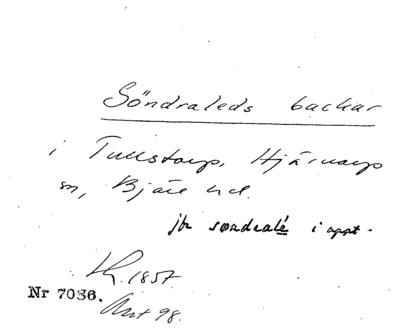 Söndraleds backar
i Tullstorp, Hjärnarp
sn, Bjäre hd.
jfr söndralé i appt.
1857.
Nr 7036.
Ant 98.